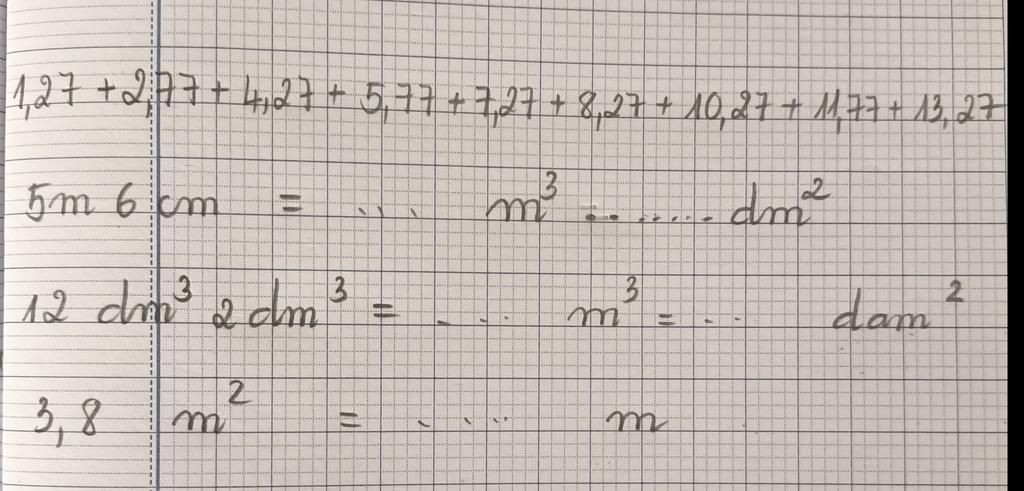 1,27 + 2,77 + 4,27 + 5,77 + 7,27 + 8,27 + 10,27 + 11,77 + 13,27
5m 6 cm = ... m³ ....... dm²
12 dm³ 2 dm³ = ... m³ = .. dam²
3,8 m² = .... m